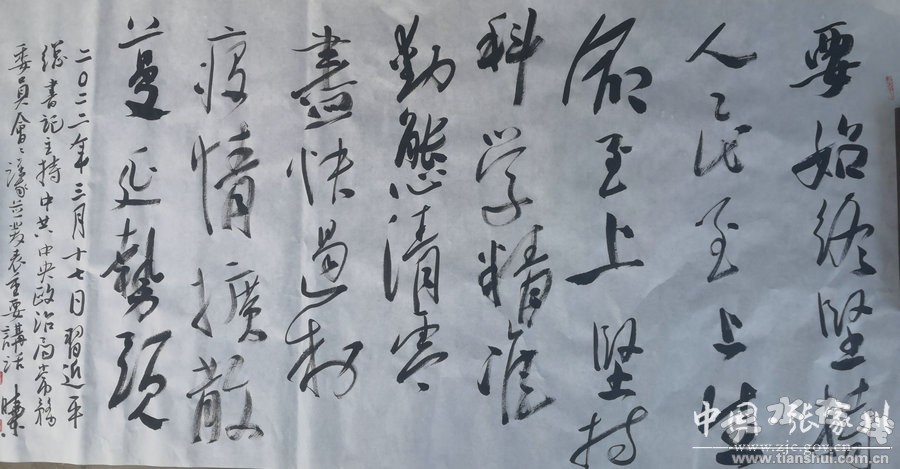 要始终坚持
人民至上生
命至上坚持
科学精准
動態清零
盡快遏制
疫情擴散
蔓延勢頭
二〇二二年三月十七日習近平
總書記主持中共中央政治局常務
委員會會議並發表重要講話
中国张家川
www.zjc.gov.cn
www.tianshui.com.cn